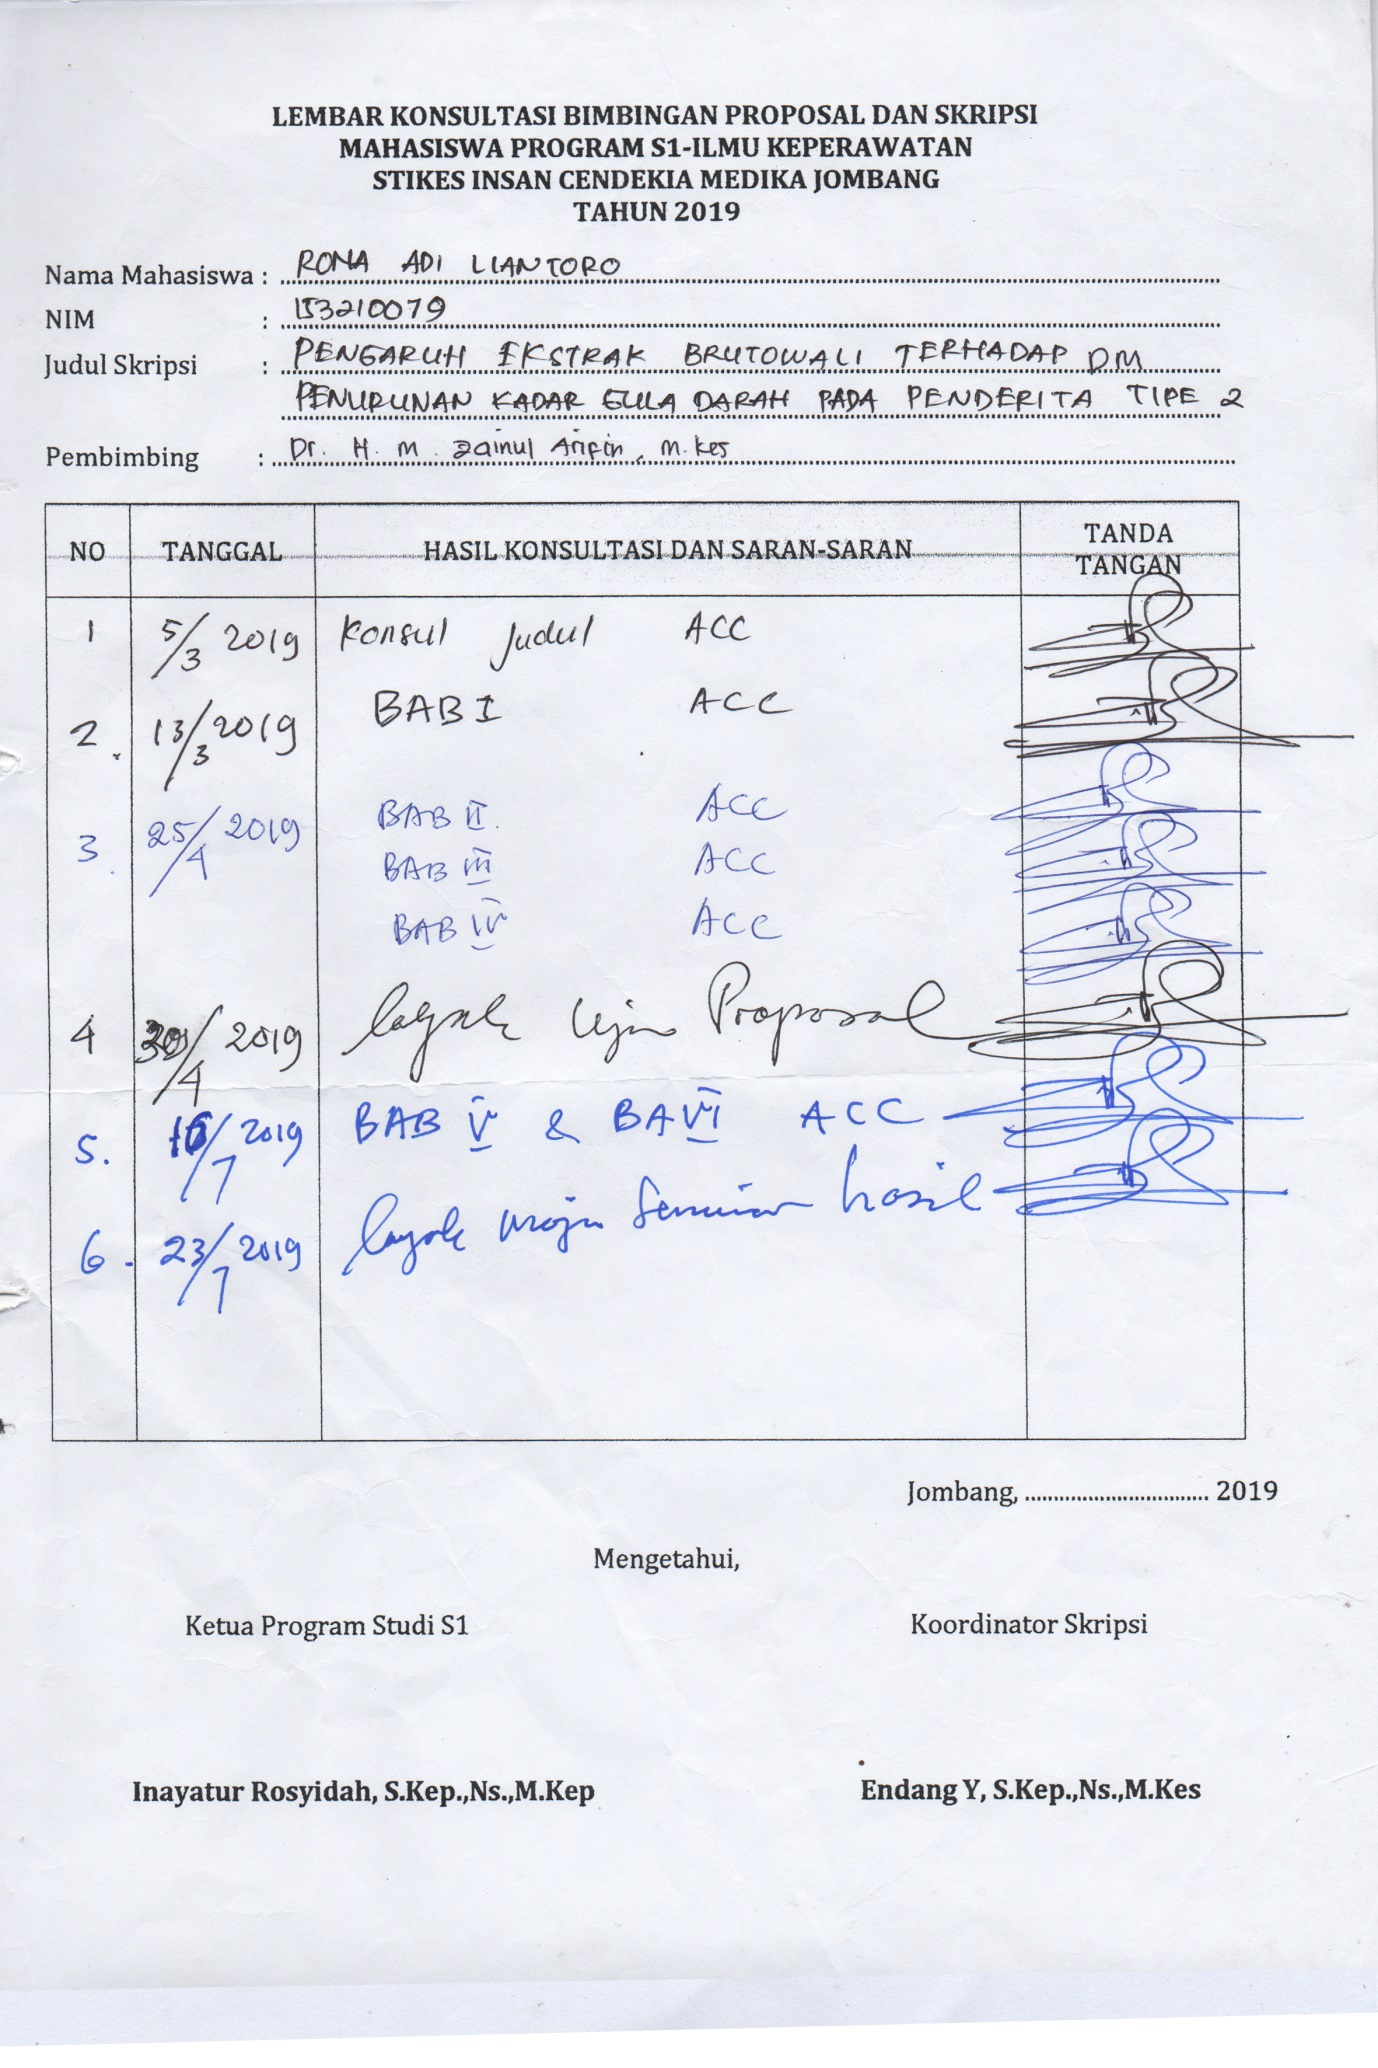 LEMBAR KONSULTASI BIMBINGAN PROPOSAL DAN SKRIPSI
MAHASISWA PROGRAM S1-ILMU KEPERAWATAN
STIKES INSAN CENDEKIA MEDIKA JOMBANG
TAHUN 2019
Nama Mahasiswa : RONA ADI LIANTORO
NIM : 153210079
Judul Skripsi : PENGARUH EKSTRAK BRUTOWALI TERHADAP DM
PENURUNAN KADAR GULA DARAH PADA PENDERITA TIPE 2
Pembimbing : Dr. H. M. Zainul Arifin, M.Kes
NO TANGGAL HASIL KONSULTASI DAN SARAN-SARAN TANDA TANGAN
1 5/3 2019 Konsul Judul ACC
2. 13/3 2019 BAB I ACC
3. 25/4 2019 BAB II. ACC
BAB III ACC
BAB IV ACC
4 30/4 2019 layak Ujian Proposal
5. 16/7 2019 BAB V & BA VI ACC
6. 23/7 2019 layak maju Seminar hasil
Jombang, .............................. 2019
Mengetahui,
Ketua Program Studi S1 Koordinator Skripsi
Inayatur Rosyidah, S.Kep.,Ns.,M.Kep Endang Y, S.Kep.,Ns.,M.Kes